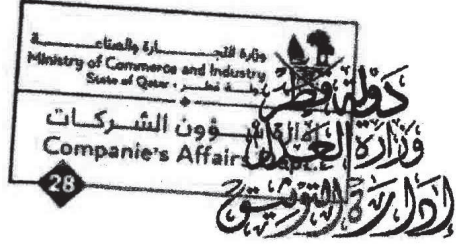 وزارة التجـــــارة والصناعـــــة
Ministry of Commerce and Industry
State of Qatar - دولـــة قطـــر
إدارة شـــؤون الشـــركـــات
Companie's Affairs Dept.
28
دولة قطر
وزارة العدل
إدارة التوثيق